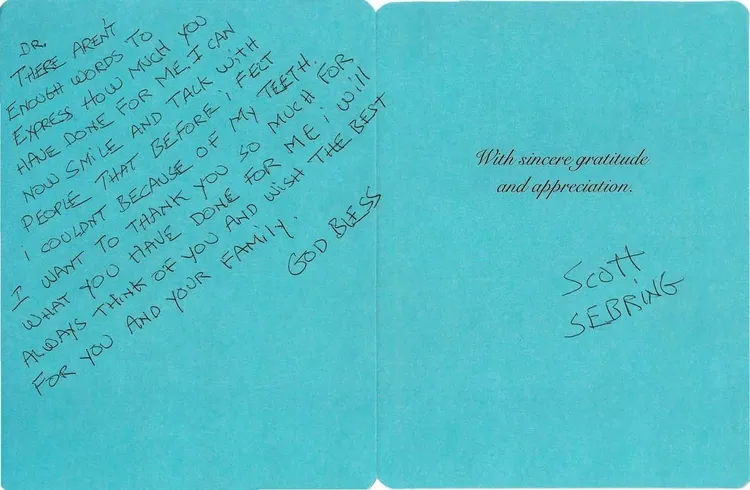 DR.
THERE AREN'T
ENOUGH WORDS TO
EXPRESS HOW MUCH YOU
HAVE DONE FOR ME. I CAN
NOW SMILE AND TALK WITH
PEOPLE THAT BEFORE i FELT
i COULDNT BECAUSE OF MY TEETH.
I WANT TO THANK YOU SO MUCH FOR
WHAT YOU HAVE DONE FOR ME i Will
ALWAYS THINK OF YOU AND WISH THE BEST
FOR YOU AND YOUR FAMILY.
GOD BLESS
With sincere gratitude
and appreciation.
SCOTT
SEBRING